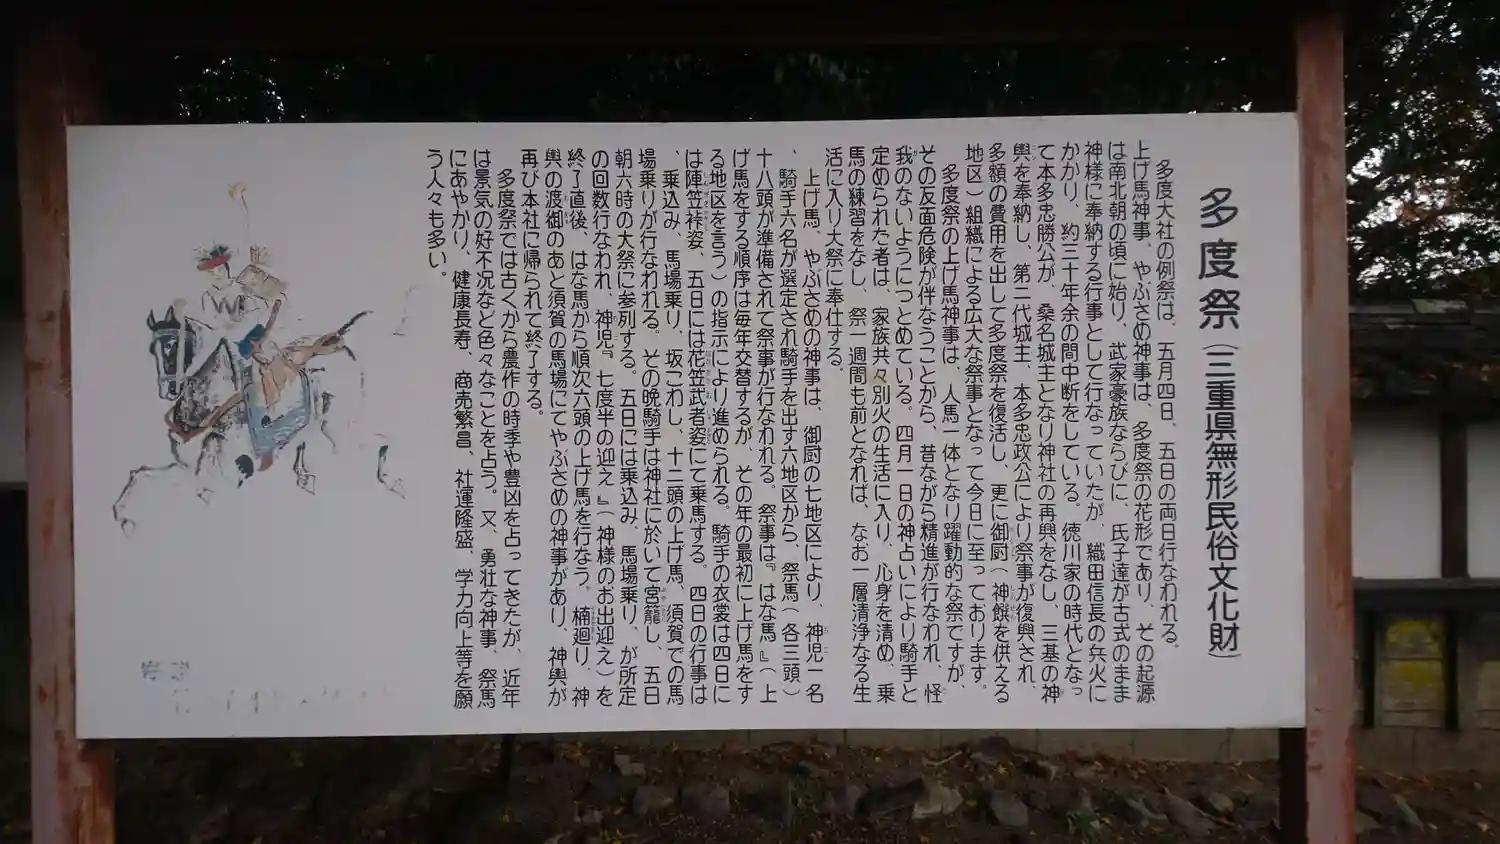 多度祭(三重県無形民俗文化財)
多度大社の例祭は、五月四日、五日の両日行なわれる。
上げ馬神事、やぶさめ神事は、多度祭の花形であり、その起源
は南北朝の頃に始り、武家豪族ならびに、氏子達が古式のまま
神様に奉納する行事として行なっていたが、織田信長の兵火に
かかり、約三十年余の間中断をしている。徳川家の時代となっ
て本多忠勝公が、桑名城主となり神社の再興をなし、三基の神
輿を奉納し、第二代城主、本多忠政公により祭事が復興され、
多額の費用を出して多度祭を復活し、更に御厨(神饌を供える
地区)組織による広大な祭事となって今日に至っております。
多度祭の上げ馬神事は、人馬一体となり躍動的な祭ですが、
その反面危険が伴なうことから、昔ながら精進が行なわれ、怪
我のないようにつとめている。四月一日の神占いにより騎手と
定められた者は、家族共々別火の生活に入り、心身を清め、乗
馬の練習をなし、祭一週間も前となれば、なお一層清浄なる生
活に入り大祭に奉仕する。
上げ馬、やぶさめの神事は、御厨の七地区により、神児一名
、騎手六名が選定され騎手を出す六地区から、祭馬(各三頭)
十八頭が準備されて祭事が行なわれる。祭事は『はな馬』(上
げ馬をする順序は毎年交替するが、その年の最初に上げ馬をす
る地区を言う)の指示により進められる。騎手の衣裳は四日に
は陣笠裃姿、五日には花笠武者姿にて乗馬する。四日の行事は
、乗込み、馬場乗り、坂こわし、十二頭の上げ馬、須賀での馬
場乗りが行なわれる。その晩騎手は神社に於いて宮籠し、五日
朝六時の大祭に参列する。五日には乗込み、馬場乗り、が所定
の回数行なわれ、神児『七度半の迎え』(神様のお出迎え)を
終了直後、はな馬から順次六頭の上げ馬を行なう。楠廻り、神
輿の渡御のあと須賀の馬場にてやぶさめの神事があり、神輿が
再び本社に帰られて終了する。
多度祭では古くから農作の時季や豊凶を占ってきたが、近年
は景気の好不況など色々なことを占う。又、勇壮な神事、祭馬
にあやかり、健康長寿、商売繁昌、社運隆盛、学力向上等を願
う人々も多い。